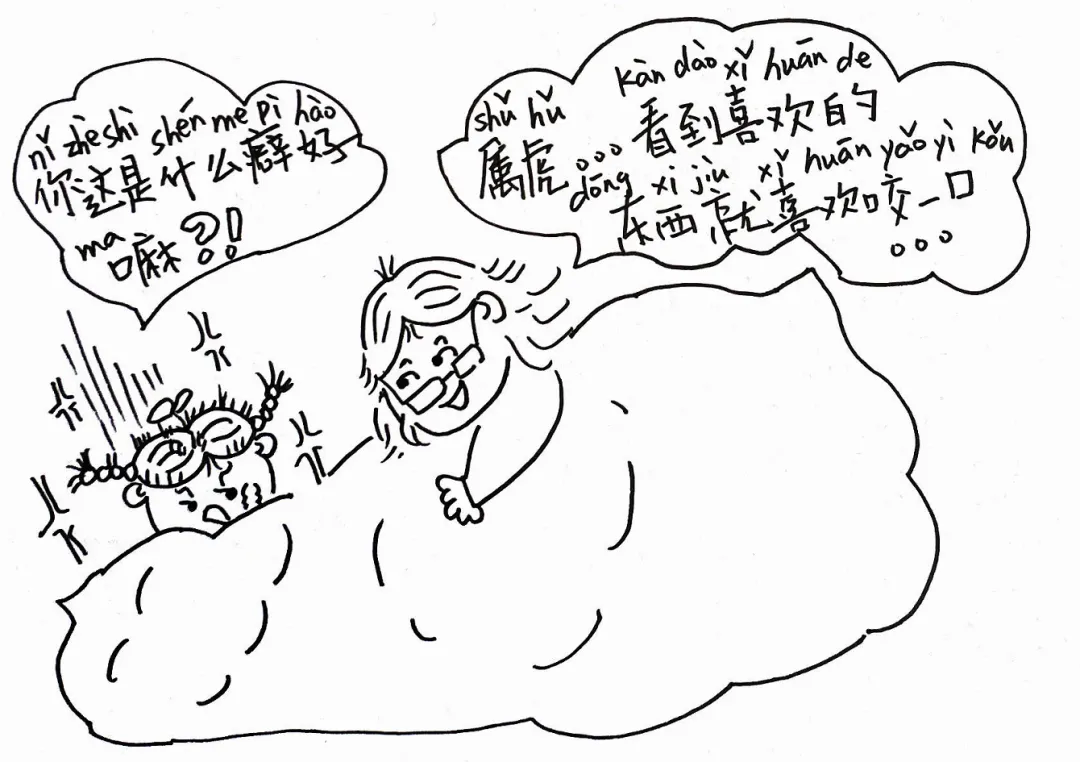 nǐ zhè shì shén me pǐ hào
你这是什么癖好
ma
嘛?!
kàn dào xǐ huān de
shǔ hǔ
属虎。。。看到喜欢的
dōng xi jiù xǐ huān yǎo yì kǒu
东西就喜欢咬一口
。。。